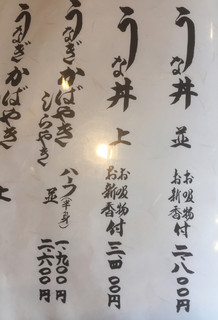 うな丼 並 お吸物 お新香付 二、八〇〇円
うな丼 上 お吸物 お新香付 三、四〇〇円
うなぎかばやき しらやき ハーフ(半身) 一、九〇〇円
並 二、六〇〇円
うなぎかばやき
上